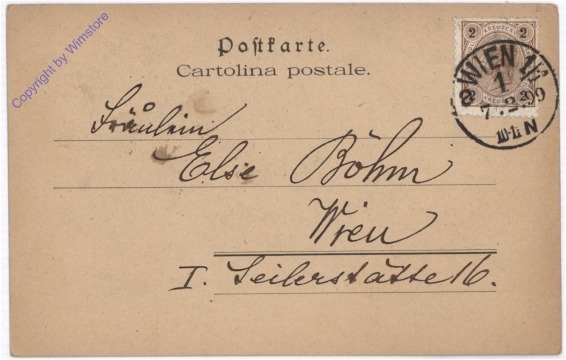 Copyright by Wimstore
Postkarte.
Cartolina postale.
2 2
WIEN 1/1
1
99
N
Fräulein
Else Böhm
Wien
I. Seilerstätte 16.